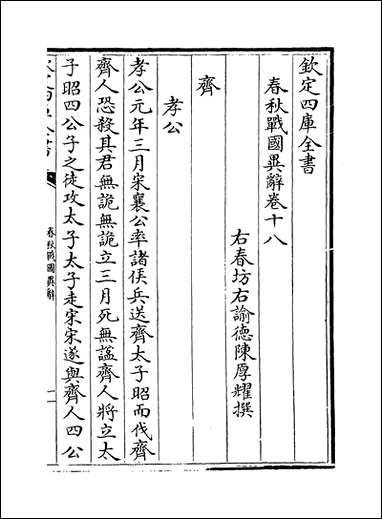 欽定四庫全書
春秋戰國異辭卷十八
右春坊右諭德陳厚耀撰
齊
孝公
孝公元年三月宋襄公率諸侯兵送齊太子昭而伐齊
齊人恐殺其君無詭無詭立三月死無謚齊人將立太
子昭四公子之徒攻太子太子走宋宋遂與齊人四公
春秋戰國異辭
一